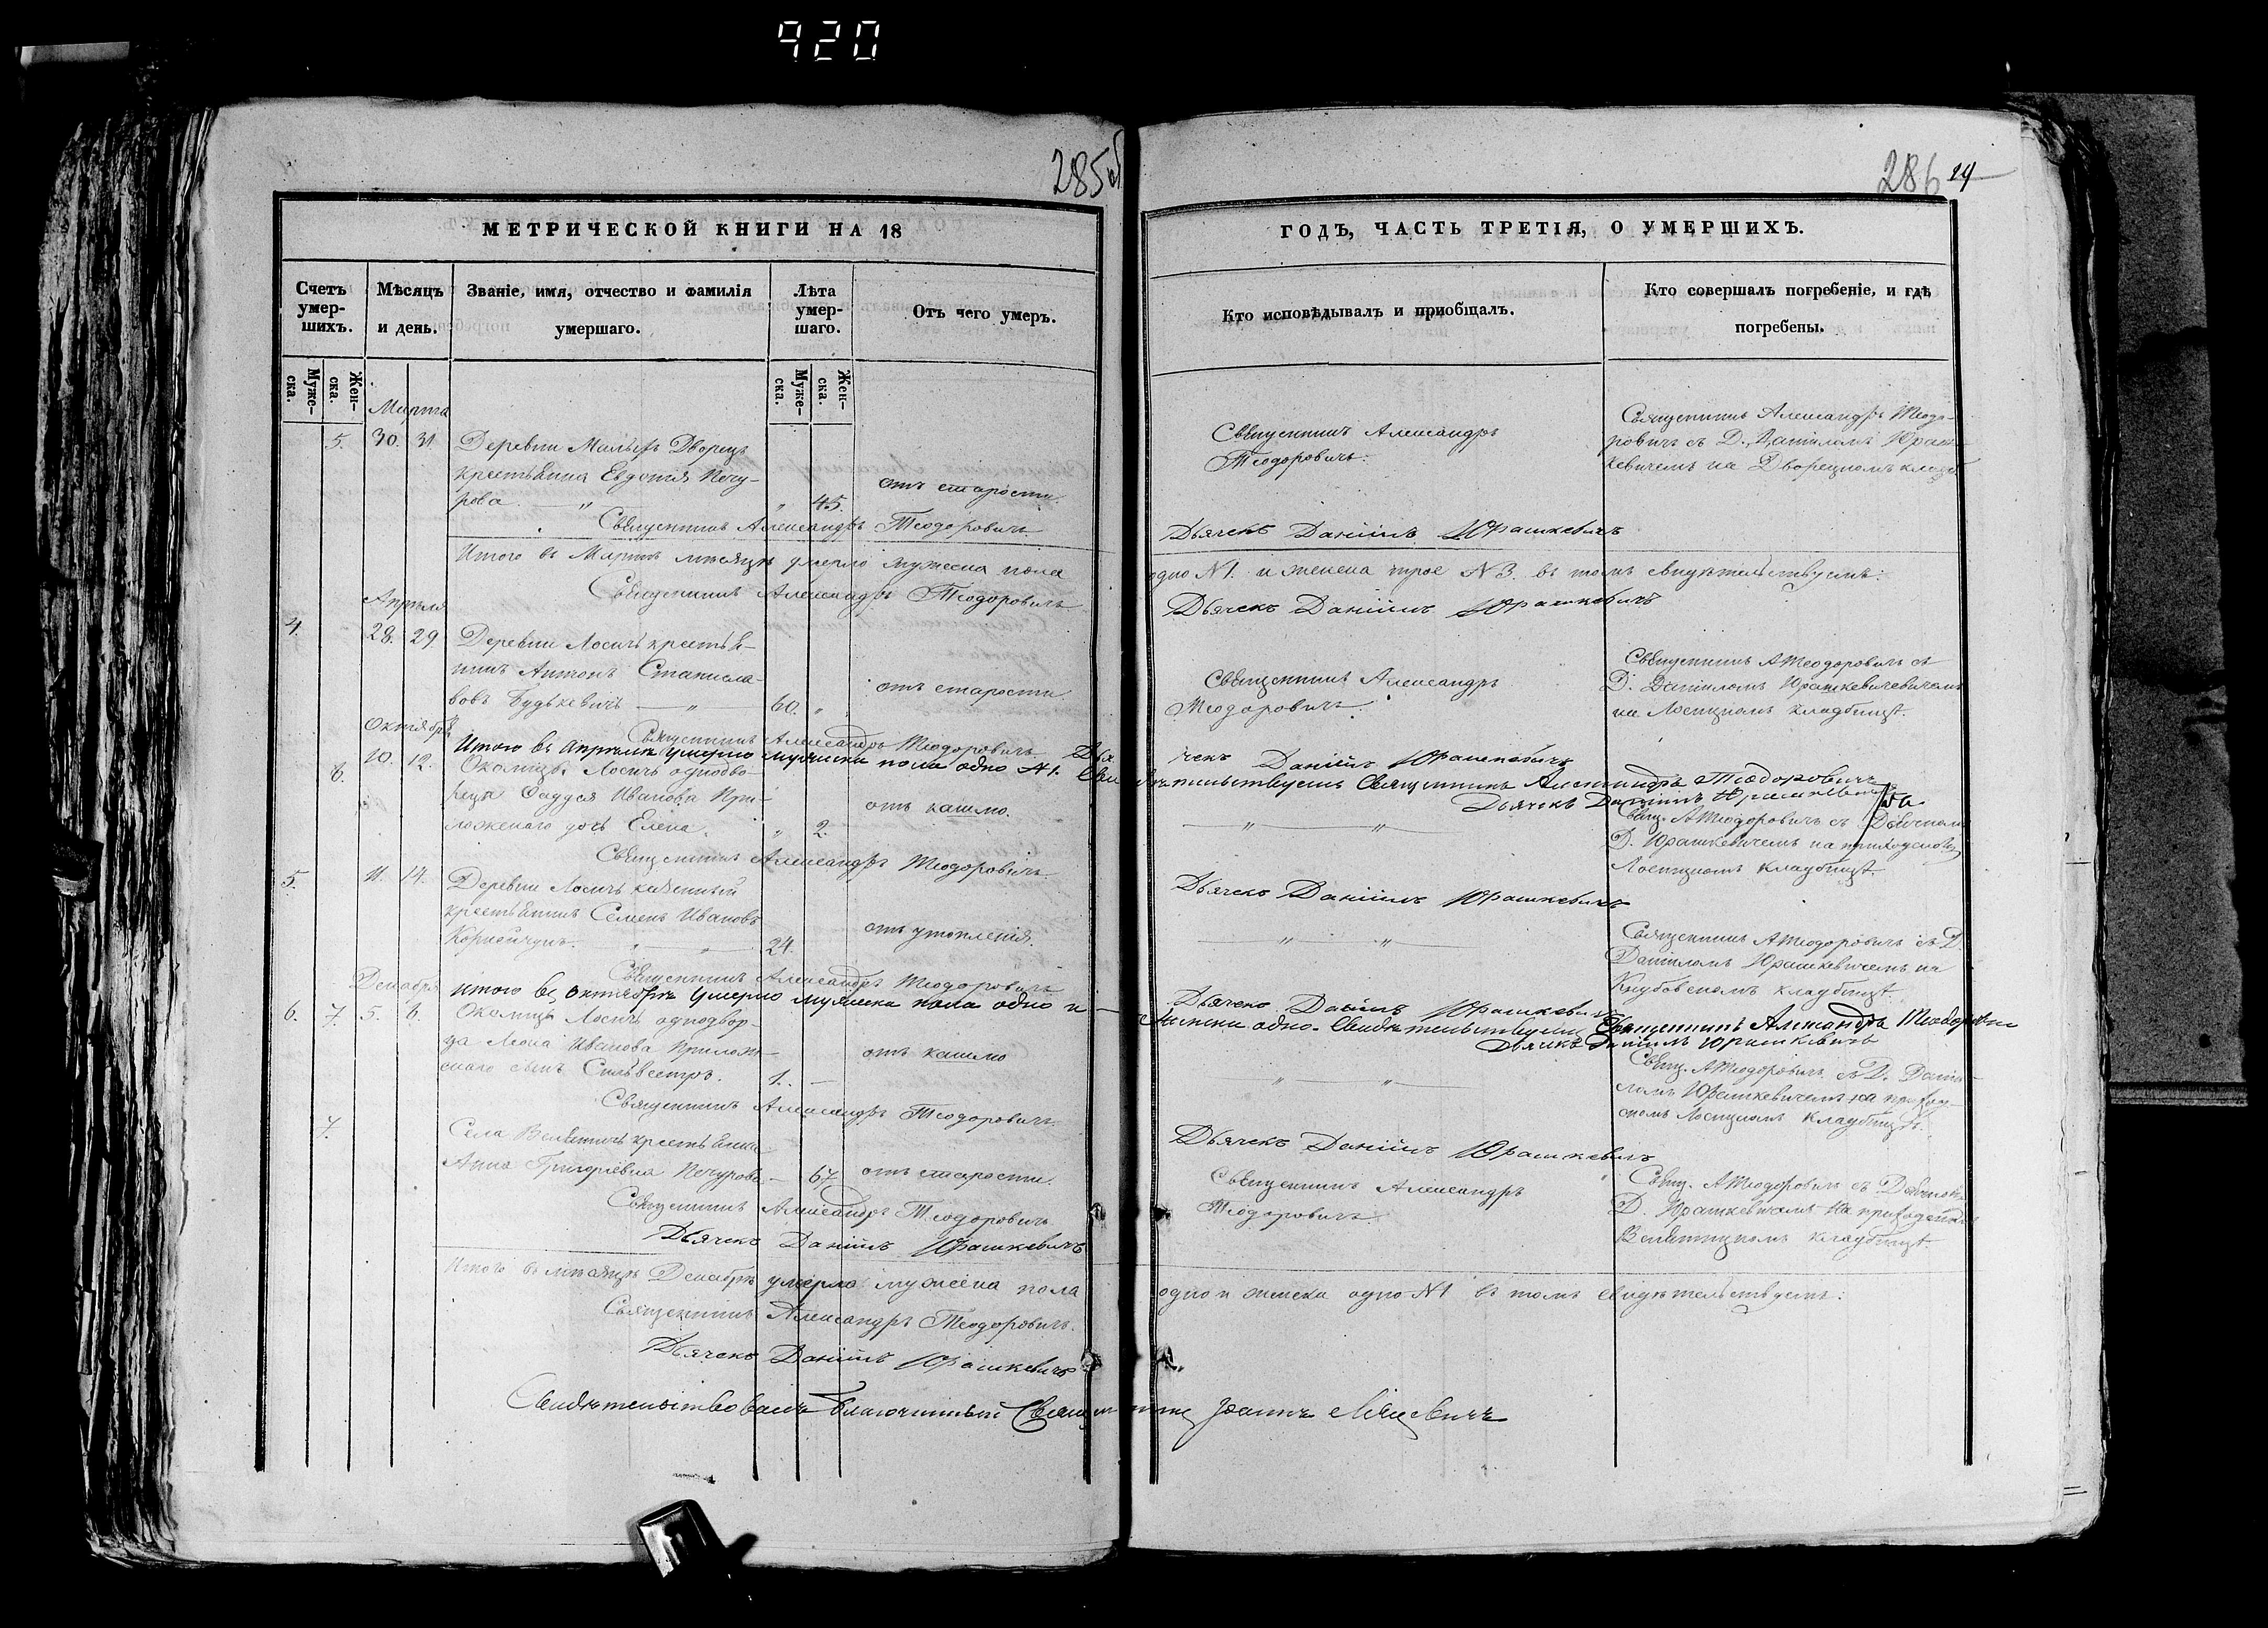 920
285 об
МЕТРИЧЕСКОЙ КНИГИ НА 18
Счетъ умер-шихъ.
Мѣсяцъ и день.
Званіе, имя, отчество и фамилія умершаго.
Лѣта умер-шаго.
Отъ чего умеръ.
Муже-ска.
Жен-ска.
Муже-ска.
Жен-ска.
Марта
5. 30. 31. Деревни Малыхъ Дворецъ
крестьянка Евдокія Печу-
рова 45. отъ старости
Священникъ Александръ Теодоровичъ
Итого въ Мартѣ мѣсяцѣ умерло мужеска пола
Священникъ Александръ Теодоровичъ
Апрѣля
4. 28. 29. Деревни Лосичъ крестья-
нинъ Антонъ Станисла-
вовъ Будкевичъ 60. отъ старости
Священникъ Александръ Теодоровичъ
Октября
Итого въ Апрѣлѣ умерло мужеска пола одно №1. Дья
6. 10. 12. Околицы Лосичъ однодво-
рца Фаддея Иванова При-
ложенаго дочь Елена. 2. отъ кашлю.
Священникъ Александръ Теодоровичъ
5. 11. 14. Деревни Лосичъ казенный
крестьянинъ Семенъ Ивановъ
Корнейчукъ. 24. отъ утопленія.
Священникъ Александръ Теодоровичъ
Декабря
итого въ Октябрѣ умерло мужеска пола одно и
6. 7. 5. 6. Околицы Лосичъ однодвор-
ца Иванова Прилож-
енаго сынъ Сильвестръ. 1. отъ кашлю
Священникъ Александръ Теодоровичъ
7. Села крестьянка
Анна Григоріевна Печурова 67 отъ старости.
Священникъ Александръ Теодоровичъ
Дьячекъ Даніилъ Юрашкевичъ
Итого въ мѣсяцѣ Декабрѣ умерло мужеска пола
Священникъ Александръ Теодоровичъ.
Дьячекъ Даніилъ Юрашкевичъ
Свидѣтельствовалъ Благочинный Священ
286 24
ГОДЪ, ЧАСТЬ ТРЕТІЯ, О УМЕРШИХЪ.
Кто исповѣдывалъ и пріобщалъ.
Кто совершалъ погребеніе, и гдѣ погребены.
Священникъ Александръ
Теодоровичъ.
Священникъ Александръ Теодо-
ровичъ съ Д. Даниломъ Юраш-
кевичемъ на Дворецкомъ кладб
Дьячекъ Даніилъ Юрашкевичъ
одно №1. и женска трое №3. въ томъ свидѣтельствуемъ:
Дьячекъ Даніилъ Юрашкевичъ
Священникъ Александръ
Теодоровичъ.
Священникъ А Теодоровичъ съ
Д. Даниломъ Юрашкевичевичемъ
на Лосицкомъ кладбищѣ.
чекъ Даніилъ Юрашкевичъ
Священникъ Александръ Теодоровичъ
Дьячекъ Даніилъ Юрашкевичъ
Свящ. А Теодоровичъ съ Дьячкомъ
Д. Юрашкевичемъ на приходскомъ
Лосицкомъ кладбищѣ.
Дьячекъ Даніилъ Юрашкевичъ
Священникъ А Теодоровичъ съ Д.
Даниломъ Юрашкевичемъ на
кладбищѣ.
Дьячекъ Даніилъ Юрашкевичъ
женска одно. Свидѣтельствуемъ Священникъ Александръ Теодоровичъ
Дьячекъ Даніилъ Юрашкевичъ
Свящ. А Теодоровичъ съ Д. Дани-
ломъ Юрашкевичемъ на приход-
скомъ Лосицкомъ кладбищѣ.
Дьячекъ Даніилъ Юрашкевичъ
Священникъ Александръ
Теодоровичъ.
Свящ. А Теодоровичъ съ Дьячкомъ
Д. Юрашкевичемъ на приходскомъ
кладбищѣ.
одно и женска одно №1 въ томъ свидѣтельствуемъ:
Іоаннъ